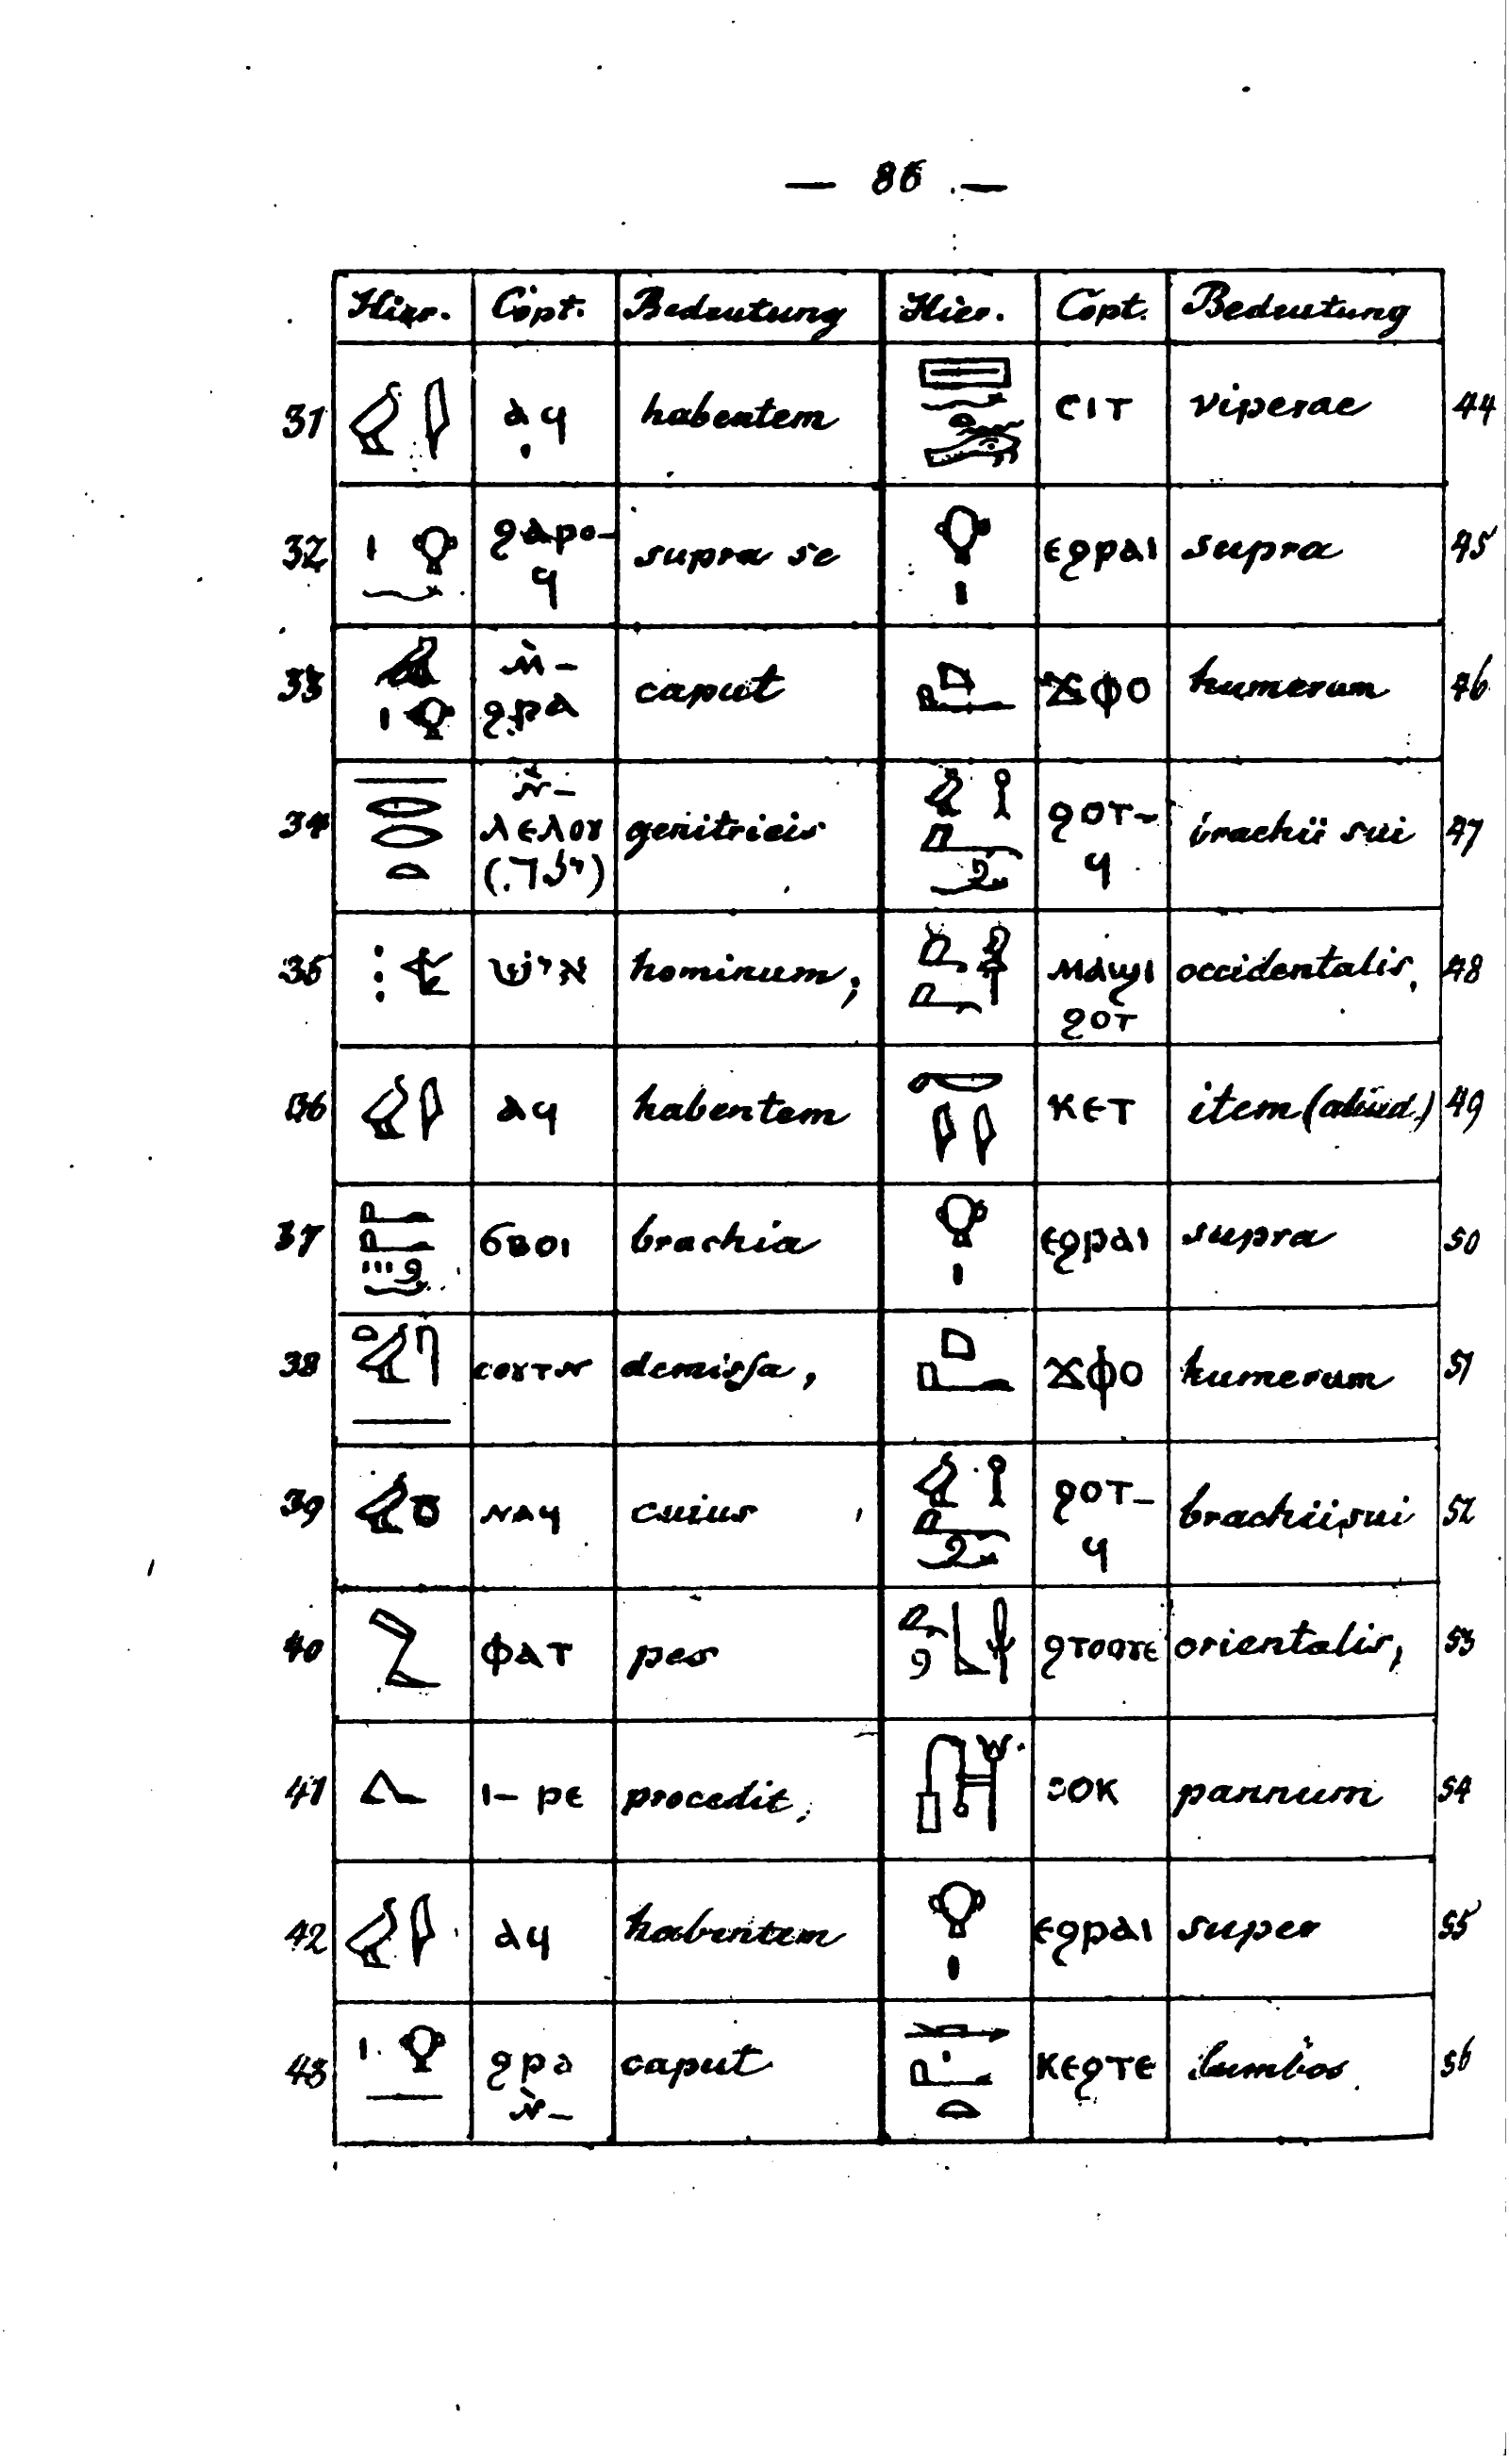 — 86 —
Hier. Copt. Bedeutung Hier. Copt. Bedeutung
31 ⲁϥ habentem ⲥⲓⲧ viperae 44
32 ϩⲁⲣⲟ-ϥ supra se ⲉϩⲣⲁⲓ supra 45
33 ⲙ̀-ϩⲣⲁ caput ϫⲫⲟ humerum 46
34 ⲛ̀-ⲗⲉⲗⲟⲩ genitricis ϩⲟⲧ-ϥ brachii sui 47
35 איש hominum; ⲙⲁϣⲓ ϩⲟⲧ occidentalis, 48
36 ⲁϥ habentem ⲕⲉⲧ item (aliud.) 49
37 ϭⲃⲟⲓ brachia ⲉϩⲣⲁⲓ supra 50
38 ⲥⲟⲩⲧⲛ demiſsa, ϫⲫⲟ humerum 51
39 ⲛⲁϥ cuius ϩⲟⲧ-ϥ brachii sui 52
40 ⲫⲁⲧ pes ϩⲧⲟⲟⲩⲉ orientalis, 53
41 ⲓ-ⲣⲉ procedit; ⲥⲟⲕ pannum 54
42 ⲁϥ habentem ⲉϩⲣⲁⲓ super 55
43 ϩⲣⲁ ⲛ̀- caput ⲕⲉϩⲧⲉ lumbos 56